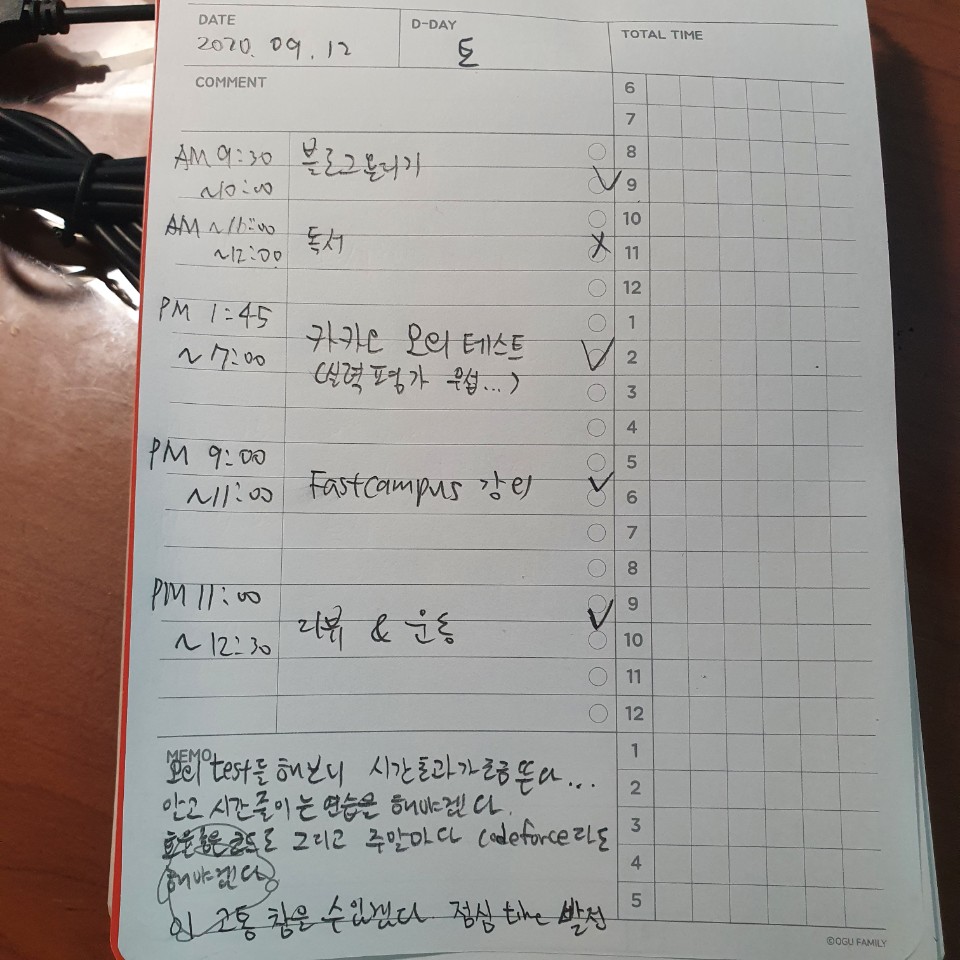 DATE
2020. 09. 12
D-DAY
토
TOTAL TIME
COMMENT
AM 9:30
~10:00
블로그올리기
AM ~11:00
~12:00
독서
PM 1:45
~7:00
카카오 모의 테스트
(실력 평가 무섭...)
PM 9:00
~11:00
Fastcampus 강의
PM 11:00
~12:30
리뷰 & 운동
6
7
8
9
10
11
12
1
2
3
4
5
6
7
8
9
10
11
12
1
2
3
4
5
MEMO
모의 test를 해보니 시간초과가 조금 뜬다...
안고 시간 줄이는 연습을 해야겠다.
그리고 주말마다 codeforce라도
해야겠다
이 고통 참을 수 있겠다 점심 time 발전
©OGU FAMILY